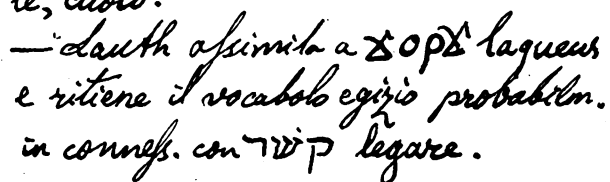 — Lauth assimila a laqueus
e ritiene il vocabolo egizio probabilm.
in conness. con קשׁר legare.